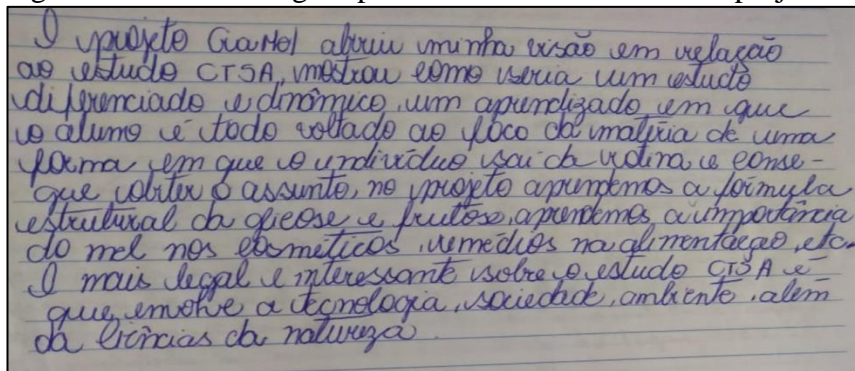 O projeto GiaMel abriu minha visão em relação
ao estudo CTSA, mostrou como seria um estudo
diferenciado e dinâmico, um aprendizado em que
o aluno é todo voltado ao foco da matéria de uma
forma em que o indivíduo sai da rotina e conse-
gue obter o assunto, no projeto aprendemos a fórmula
estrutural da glicose e frutose, aprendemos a importância
do mel nos cosméticos, remédios na alimentação, etc.
O mais legal e interessante sobre o estudo CTSA é
que envolve a tecnologia, sociedade, ambiente, além
da ciências da natureza.